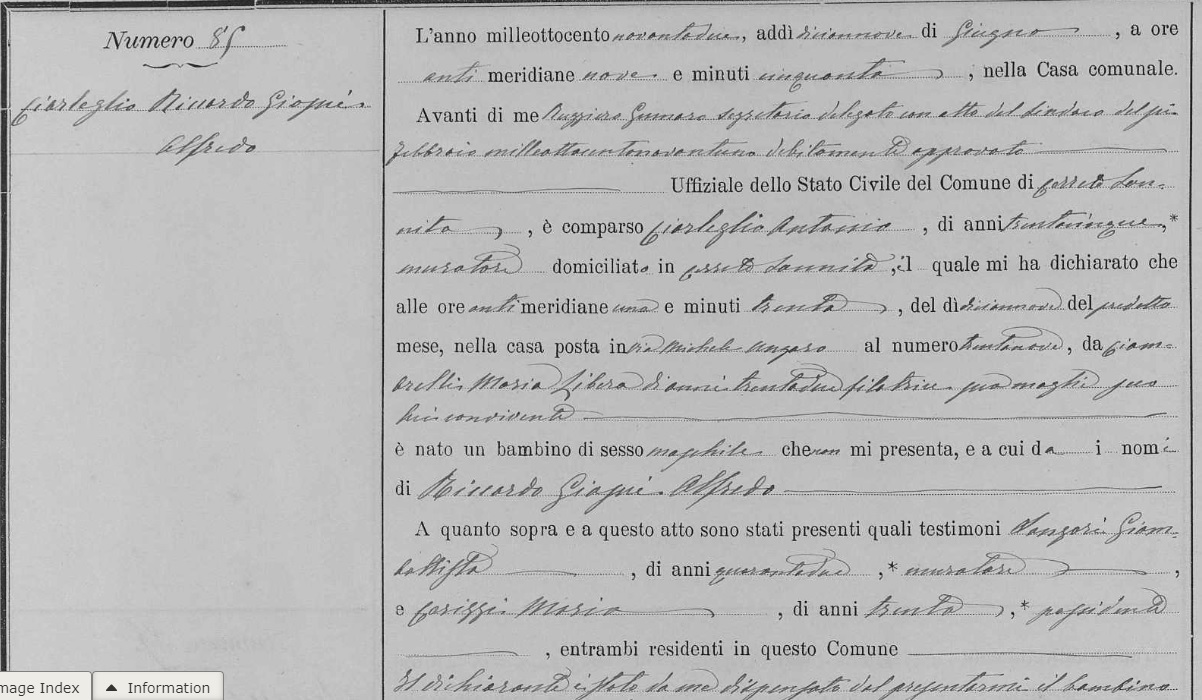 Numero 85
Ciarleglio Riccardo Giosuè
Alfredo
L'anno milleottocento novantadue, addì diciannove di Giugno, a ore
anti meridiane nove e minuti cinquanta, nella Casa comunale.
Avanti di me Ruggiero Gennaro segretario delegato con atto del sindaco del
febbraio milleottocentonovantuno debitamente approvato
Uffiziale dello Stato Civile del Comune di Cerreto San-
nita, è comparso Ciarleglio Antonio, di anni trentacinque,*
muratore domiciliato in Cerreto Sannita, il quale mi ha dichiarato che
alle ore anti meridiane una e minuti trenta, del dì diciannove del predetto
mese, nella casa posta in via Michele Ungaro al numero trentanove, da Ciam-
arelli Maria Libera di anni trentadue filatrice sua moglie seco
lui convivente
è nato un bambino di sesso maschile che non mi presenta, e a cui da i nomi
di Riccardo Giosuè Alfredo
A quanto sopra e a questo atto sono stati presenti quali testimoni Giam-
battista, di anni quarantadue,* muratore,
e Mario, di anni trenta,* possidente
, entrambi residenti in questo Comune
Il dichiarante è stato da me dispensato dal presentarmi il bambino
mage Index
Information